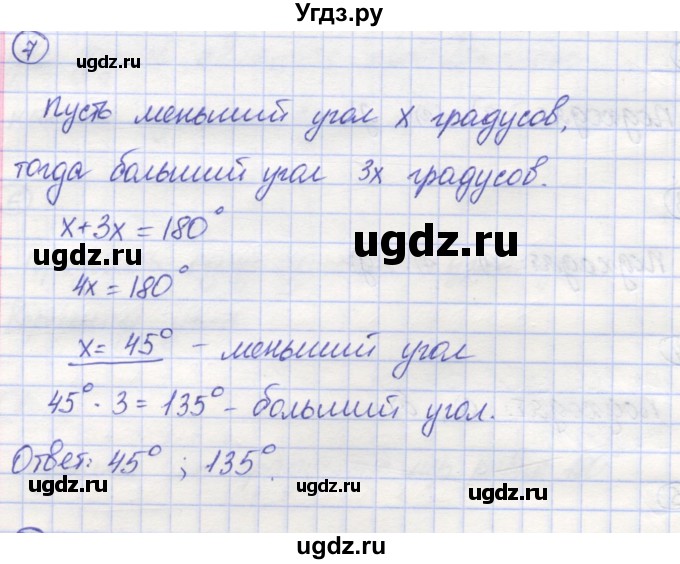 Угдз.ру
7
ugdz.ru
ugdz.ru
Пусть меньший угол x градусов,
тогда больший угол 3x градусов.
x+3x=180°
ugdz.ru
4x=180°
ugdz.ru
x=45° - меньший угол
ugdz.ru
ugdz.ru
45°·3=135° - больший угол.
Ответ: 45° ; 135°.
ugdz.ru
ugdz.ru
ugdz.ru